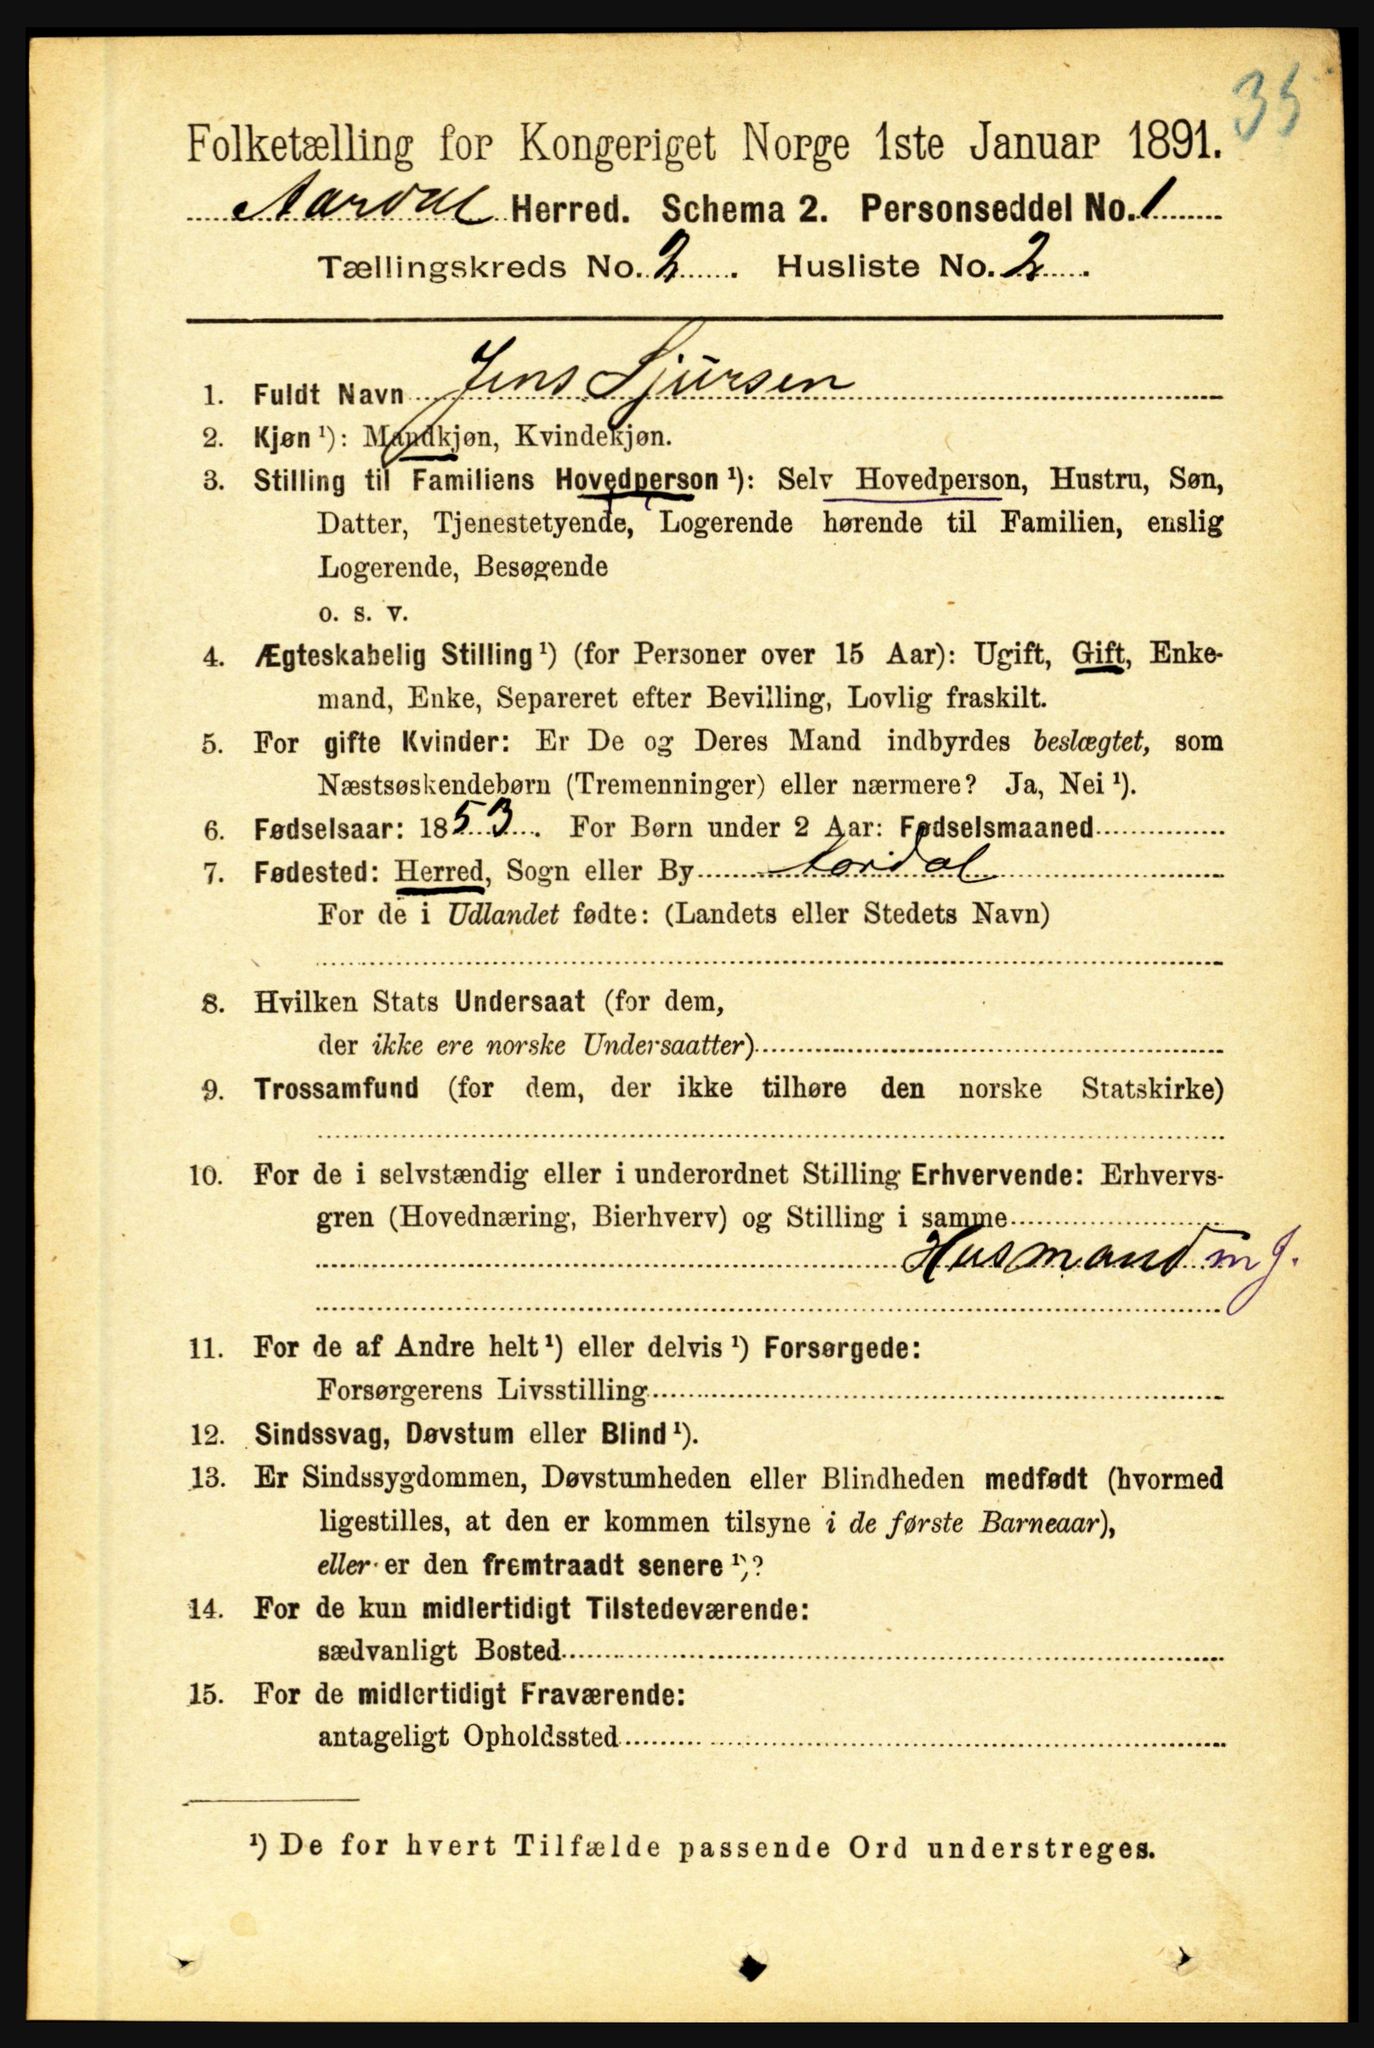 35
Folketælling for Kongeriget Norge 1ste Januar 1891.
Aardal Herred. Schema 2. Personseddel No. 1
Tællingskreds No. 2. Husliste No. 2.
1. Fuldt Navn Jens Sjursen
2. Kjøn ¹): Mandkjøn, Kvindekjøn.
3. Stilling til Familiens Hovedperson ¹): Selv Hovedperson, Hustru, Søn,
Datter, Tjenestetyende, Logerende hørende til Familien, enslig
Logerende, Besøgende
o. s. v.
4. Ægteskabelig Stilling ¹) (for Personer over 15 Aar): Ugift, Gift, Enke-
mand, Enke, Separeret efter Bevilling, Lovlig fraskilt.
5. For gifte Kvinder: Er De og Deres Mand indbyrdes beslægtet, som
Næstsøskendebørn (Tremenninger) eller nærmere? Ja, Nei ¹).
6. Fødselsaar: 1853. For Børn under 2 Aar: Fødselsmaaned
7. Fødested: Herred, Sogn eller By Aardal
For de i Udlandet fødte: (Landets eller Stedets Navn)
8. Hvilken Stats Undersaat (for dem,
der ikke ere norske Undersaatter)
9. Trossamfund (for dem, der ikke tilhøre den norske Statskirke)
10. For de i selvstændig eller i underordnet Stilling Erhvervende: Erhvervs-
gren (Hovednæring, Bierhverv) og Stilling i samme
Husmand m J.
11. For de af Andre helt ¹) eller delvis ¹) Forsørgede:
Forsørgerens Livsstilling
12. Sindssvag, Døvstum eller Blind ¹).
13. Er Sindssygdommen, Døvstumheden eller Blindheden medfødt (hvormed
ligestilles, at den er kommen tilsyne i de første Barneaar),
eller er den fremtraadt senere ¹)?
14. For de kun midlertidigt Tilstedeværende:
sædvanligt Bosted
15. For de midlertidigt Fraværende:
antageligt Opholdssted
¹) De for hvert Tilfælde passende Ord understreges.